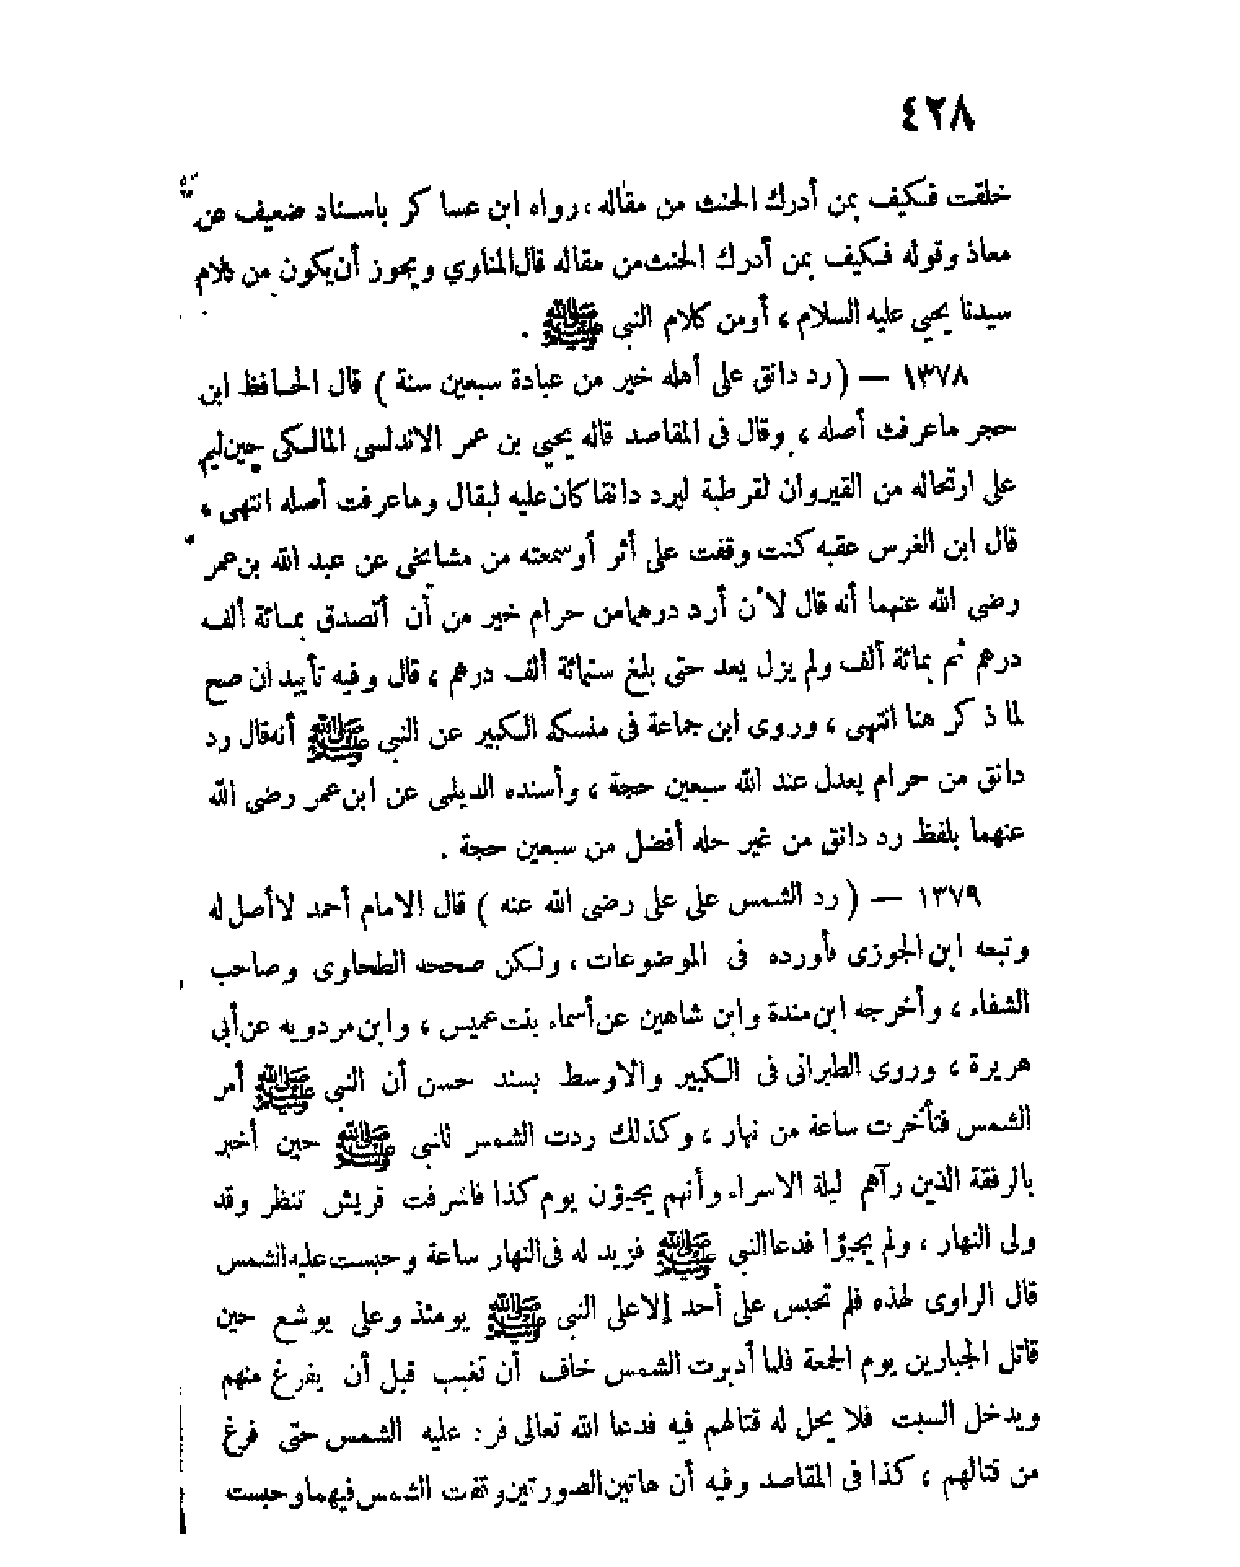 ٤٢٨
خلقت فكيف بمن أدرك الحنث من مقاله ، رواه ابن عساكر باسناد ضعيف عن
معاذ وقوله فكيف بمن أدرك الحنث من مقاله قال المناوي ويجوز أن يكون من كلام
سيدنا يحيي عليه السلام ، أو من كلام النبى ﷺ .
١٣٧٨ — ( رد دانق على أهله خير من عبادة سبعين سنة ) قال الحافظ ابن
حجر ما عرفت أصله ، وقال فى المقاصد قاله يحيي بن عمر الاندلسى المالكى حين ليم
على ارتحاله من القيروان لقرطبة ليرد دانقا كان عليه لبقال وما عرفت أصله انتهى ،
قال ابن الغرس عقبه كنت وقفت على أثر أو سمعته من مشايخى عن عبد الله بن عمر
رضى الله عنهما أنه قال لأن أرد درهما من حرام خير من أن أتصدق بمائة ألف
درهم ثم بمائة ألف ولم يزل يعد حتى بلغ ستمائة ألف درهم ، قال وفيه تأييد ان صح
لما ذكر هنا انتهى ، وروى ابن جماعة فى منسكه الكبير عن النبى ﷺ أنه قال رد
دانق من حرام يعدل عند الله سبعين حجة ، وأسنده الديلمى عن ابن عمر رضى الله
عنهما بلفظ رد دانق من غير حله أفضل من سبعين حجة .
١٣٧٩ — ( رد الشمس على على رضى الله عنه ) قال الامام أحمد لا أصل له
وتبعه ابن الجوزى فأورده فى الموضوعات ، ولكن صححه الطحاوى وصاحب
الشفاء ، وأخرجه ابن مندة وابن شاهين عن أسماء بنت عميس ، وابن مردويه عن أبى
هريرة ، وروى الطبرانى فى الكبير والاوسط بسند حسن أن النبى ﷺ أمر
الشمس فتأخرت ساعة من نهار ، وكذلك ردت الشمس للنبى ﷺ حين أخبر
بالرفقة الذين رآهم ليلة الاسراء وأنهم يجيؤن يوم كذا فاشرفت قريش تنظر وقد
ولى النهار ، ولم يجيؤا فدعا النبى ﷺ فزيد له فى النهار ساعة وحبست عليه الشمس
قال الراوى لهذه فلم تحبس على أحد إلا على النبى ﷺ يومئذ وعلى يوشع حين
قاتل الجبارين يوم الجمعة فلما أدبرت الشمس خاف أن تغيب قبل أن يفرغ منهم
ويدخل السبت فلا يحل له قتالهم فيه فدعا الله تعالى فرد عليه الشمس حتى فرغ
من قتالهم ، كذا فى المقاصد وفيه أن هاتين الصورتين وقفت الشمس فيهما وحبست